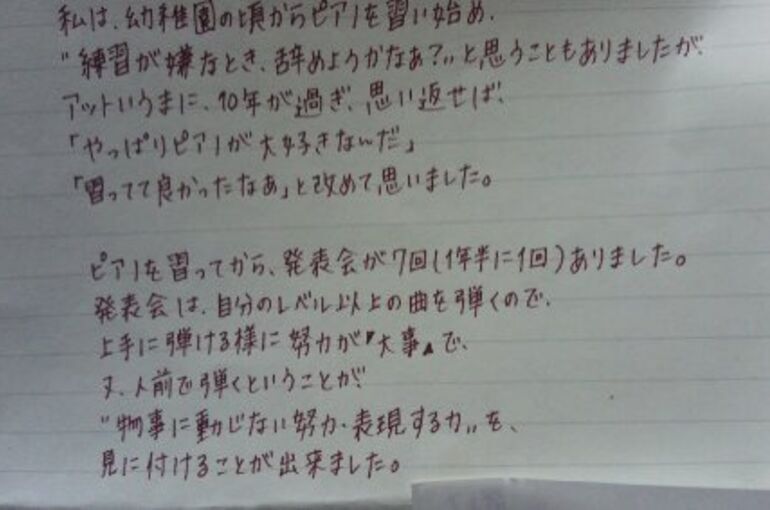 私は、幼稚園の頃からピアノを習い始め、
"練習が嫌なとき、辞めようかなぁ?"と思うこともありましたが、
アットいうまに、10年が過ぎ、思い返せば、
「やっぱりピアノが大好きなんだ」
「習ってて良かったなあ」と改めて思いました。
ピアノを習ってから、発表会が7回(1年半に1回)ありました。
発表会は、自分のレベル以上の曲を弾くので、
上手に弾ける様に努力が『大事』で、
又、人前で弾くということが
"物事に動じない努力・表現する力"を、
見に付けることが出来ました。